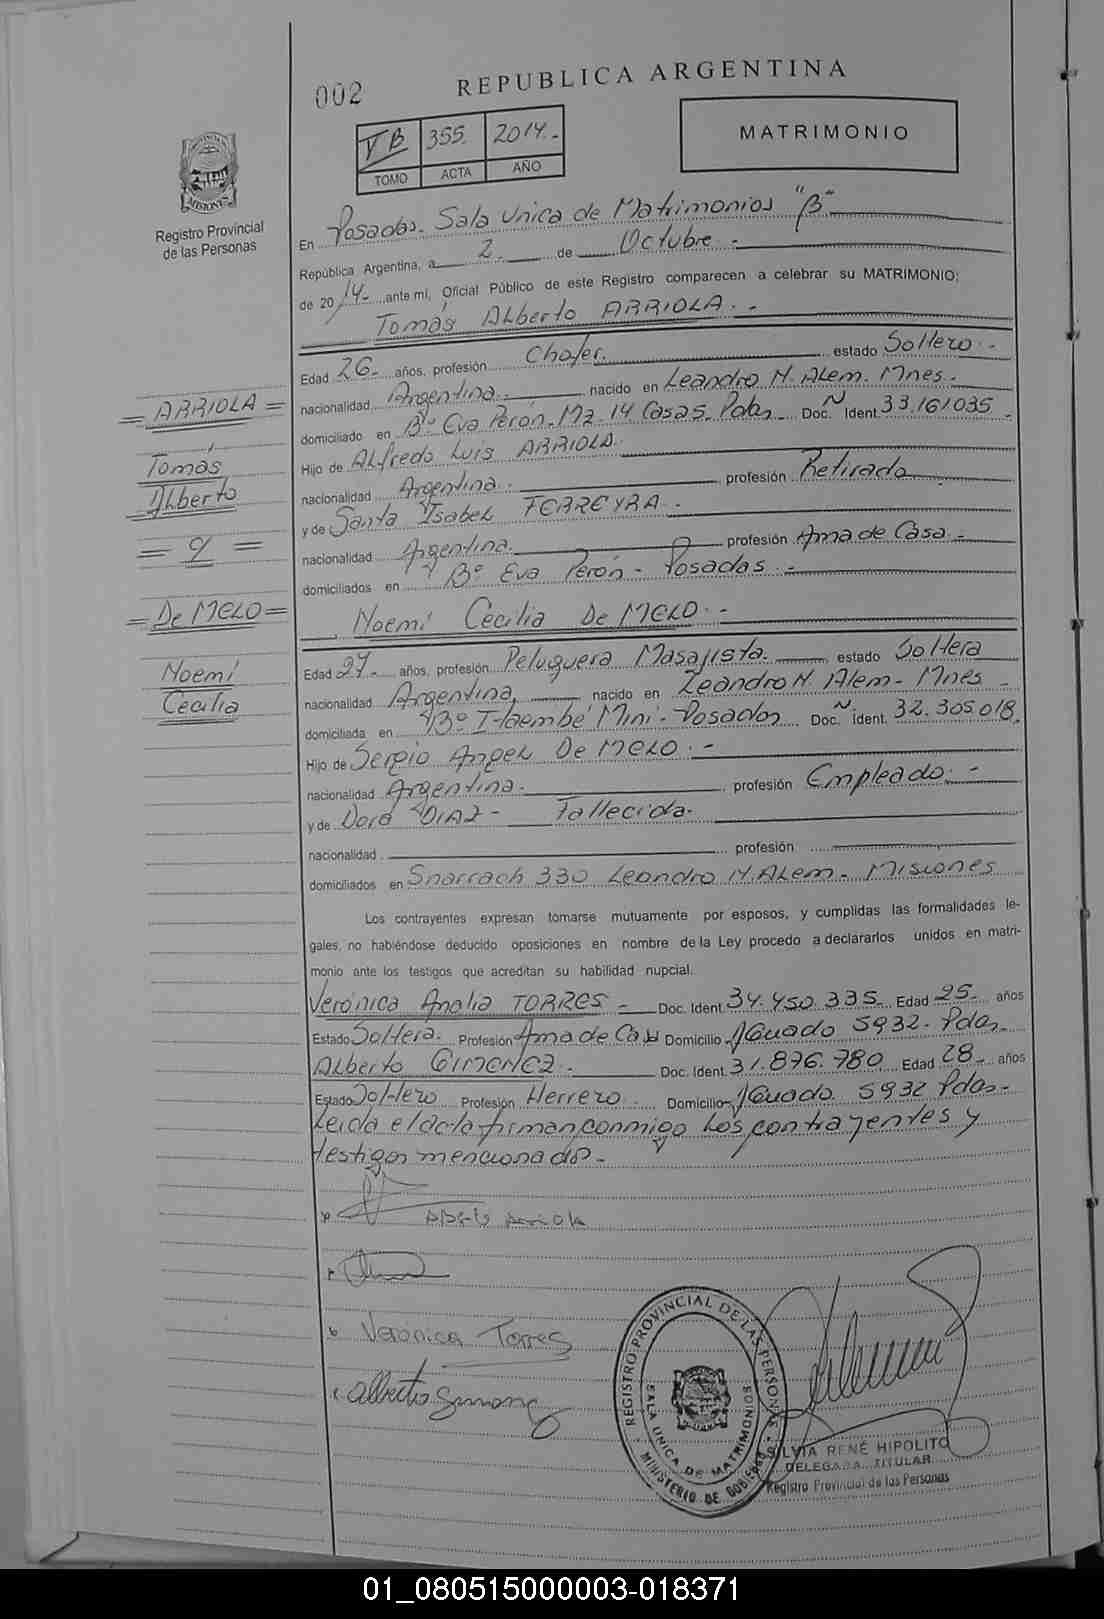 002
REPUBLICA ARGENTINA
V B 355. 2014.-
TOMO ACTA AÑO
MATRIMONIO
PROVINCIA MISIONES
Registro Provincial
de las Personas
En Posadas. Sala Unica de Matrimonios "B"
República Argentina, a 2 de Octubre.-
de 2014.- ante mí, Oficial Público de este Registro comparecen a celebrar su MATRIMONIO;
Tomás Alberto ARRIOLA.-
Edad 26.- años, profesión Chofer. estado Soltero.-
nacionalidad Argentina. nacido en Leandro N. Alem. Mnes.-
domiciliado en Bº Eva Perón. Mz. 14 Casa 5. Pdas Doc. N Ident. 33.161.035.-
Hijo de Alfredo Luis ARRIOLA.
nacionalidad Argentina. profesión Retirado
y de Santa Isabel FERREYRA.-
nacionalidad Argentina. profesión Ama de Casa.-
domiciliados en Bº Eva Perón - Posadas.-
Noemí Cecilia De MELO.-
Edad 27.- años, profesión Peluquera Masajista. estado Soltera
nacionalidad Argentina. nacido en Leandro N. Alem - Mnes -
domiciliada en Bº Itaembé Mini - Posadas Doc. N Ident. 32.305.018.
Hijo de Sergio Angel De MELO.-
nacionalidad Argentina. profesión Empleado.-
y de Dora DIAZ - Fallecida.
nacionalidad profesión
domiciliados en 330 Leandro N. Alem - Misiones
Los contrayentes expresan tomarse mutuamente por esposos, y cumplidas las formalidades le-
gales, no habiéndose deducido oposiciones en nombre de la Ley procedo a declararlos unidos en matri-
monio ante los testigos que acreditan su habilidad nupcial.
Verónica Analia TORRES - Doc. Ident. 34.450.335. Edad 25.- años
Estado Soltera. Profesión Ama de Casa Domicilio 5932. Pdas.
Alberto GIMENEZ.- Doc. Ident. 31.876.780 Edad 28.- años
Estado Soltero Profesión Herrero. Domicilio 5932 Pdas.-
Leída el acta firman conmigo los contrayentes y
testigos mencionados.-
= ARRIOLA =
Tomás
Alberto
= y =
= De MELO =
Noemí
Cecilia
Arriola
Verónica Torres
Alberto Gimenez
REGISTRO PROVINCIAL DE LAS PERSONAS
SALA UNICA DE MATRIMONIOS
MINISTERIO DE GOBIERNO
SILVIA RENÉ HIPOLITO
DELEGADA TITULAR
Registro Provincial de las Personas
01_080515000003-018371